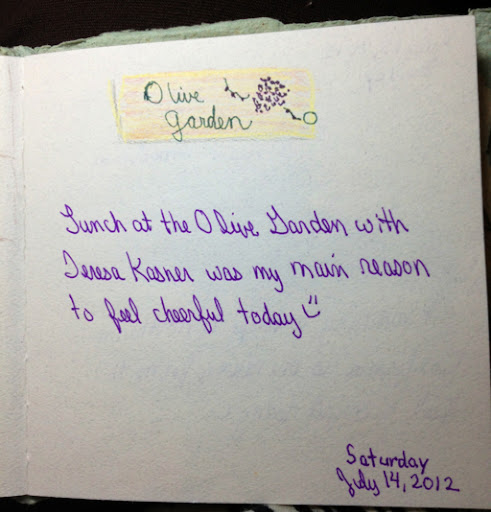 Olive
Garden
Lunch at the Olive Garden with
Teresa Kasner was my main reason
to feel cheerful today
Saturday
July 14, 2012